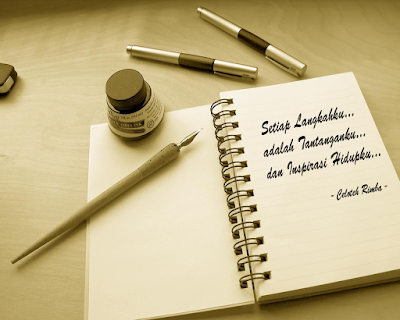 Setiap Langkahku...
adalah Tantanganku...
dan Inspirasi Hidupku...
- Celoteh Rimba -